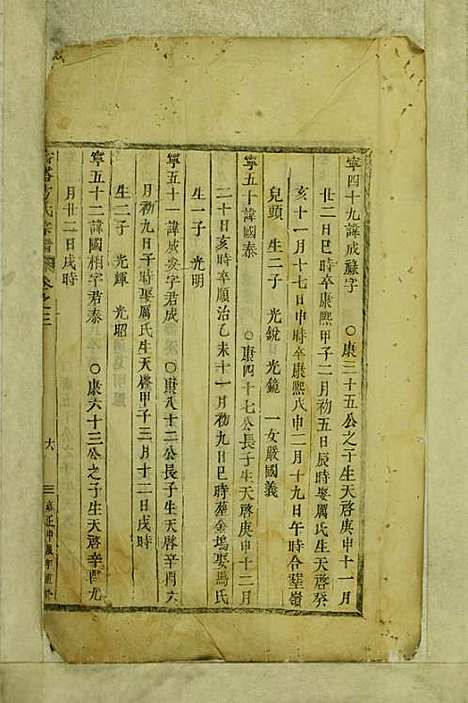 寧四十九諱成祿字　○康三十五公之子生天啓庚申十一月
廿二日巳時卒康熙甲子二月初五日辰時娶厲氏生天啓癸
亥十一月十七日申時卒康熙戊申二月十九日午時合塟嶺
兒頭　生二子　光銳　光鏡　一女嚴國義
寧五十諱國泰　○康四十七公長子生天啓庚申十二月
二十日亥時卒順治乙未十一月初九日巳時塟金塢娶馬氏
生一子　光明
寧五十一諱成安字君成　○康八十二公長子生天啓辛酉六
月初九日午時娶厲氏生天啓甲子三月十二日戌時
生二子　光輝　光昭
寧五十二諱國相字君泰　○康六十三公之子生天啓辛酉九
月廿二日戌時
方氏宗譜　卷之三